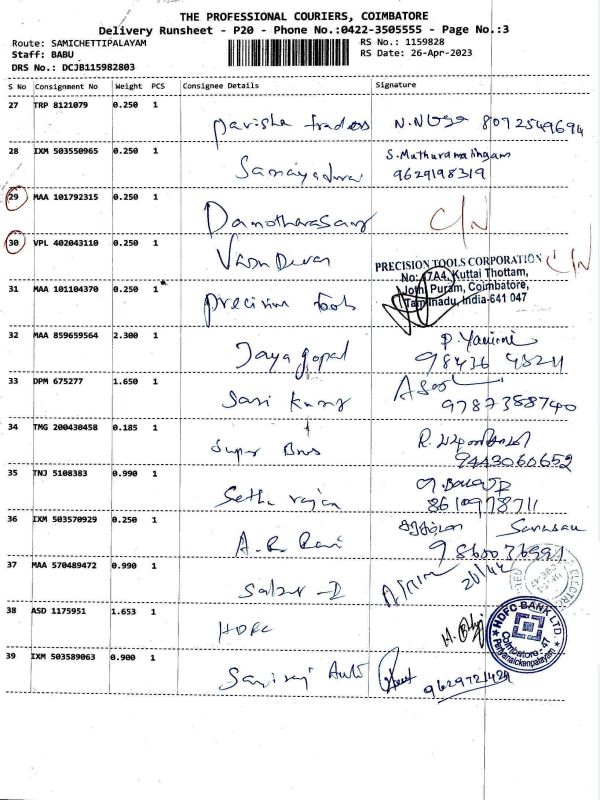 THE PROFESSIONAL COURIERS, COIMBATORE
Delivery Runsheet - P20 - Phone No.:0422-3505555 - Page No.:3
Route: SAMICHETTIPALAYAM
Staff: BABU
DRS No.: DCJB115982803
RS No.: 1159828
RS Date: 26-Apr-2023
S No Consignment No Weight PCS Consignee Details Signature
27 TRP 8121079 0.250 1
Pavisha traders 8072549694
28 IXM 503550965 0.250 1
S. Muthuramalingam
9629198319
29 MAA 101792315 0.250 1
Damotharasamy C/N
30 VPL 402043110 0.250 1
Vasu Devan C/N
PRECISION TOOLS CORPORATION
No: 47A4, Kuttai Thottam,
Jothi Puram, Coimbatore,
Tamilnadu, India-641 047
31 MAA 101104370 0.250 1
Precision Tools
32 MAA 859659564 2.300 1
Jaya gopal
98436 48211
33 DPM 675277 1.650 1
Sasi Kumar
9787388740
34 TMG 200430458 0.185 1
Super Bros
9443060652
35 TNJ 5108383 0.990 1
Sethu rajan
8610978711
36 IXM 503570929 0.250 1
A.R Ravi
9860076991
37 MAA 570489472 0.990 1
26/4
38 ASD 1175951 1.653 1
HDFC
HDFC BANK LTD.
Coimbatore-47
Periyanaickenpalayam
39 IXM 503589063 0.900 1
Auto
9629721429